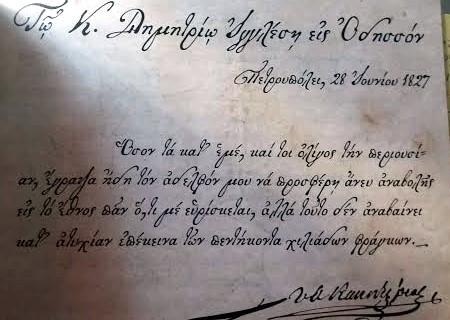 Τῷ Κ. Δημητρίῳ Ἰγγλέσῃ εἰς Ὀδησσόν
Πετρουπόλει, 28 Ἰουνίου 1827
Ὅσον τὰ κατ' ἐμέ, καί τοι ὀλίγος τὴν περιουσί-
αν, ἔγραψα ἤδη τὸν ἀδελφόν μου νὰ προσφέρῃ ἄνευ ἀναβολῆς
εἰς τὸ ἔθνος πᾶν ὅ,τι μὲ εὑρίσκεται, ἀλλὰ τοῦτο δὲν ἀναβαίνει
κατ' ἀτυχίαν ἐπέκεινα τῶν πεντήκοντα χιλιάδων φράγκων._